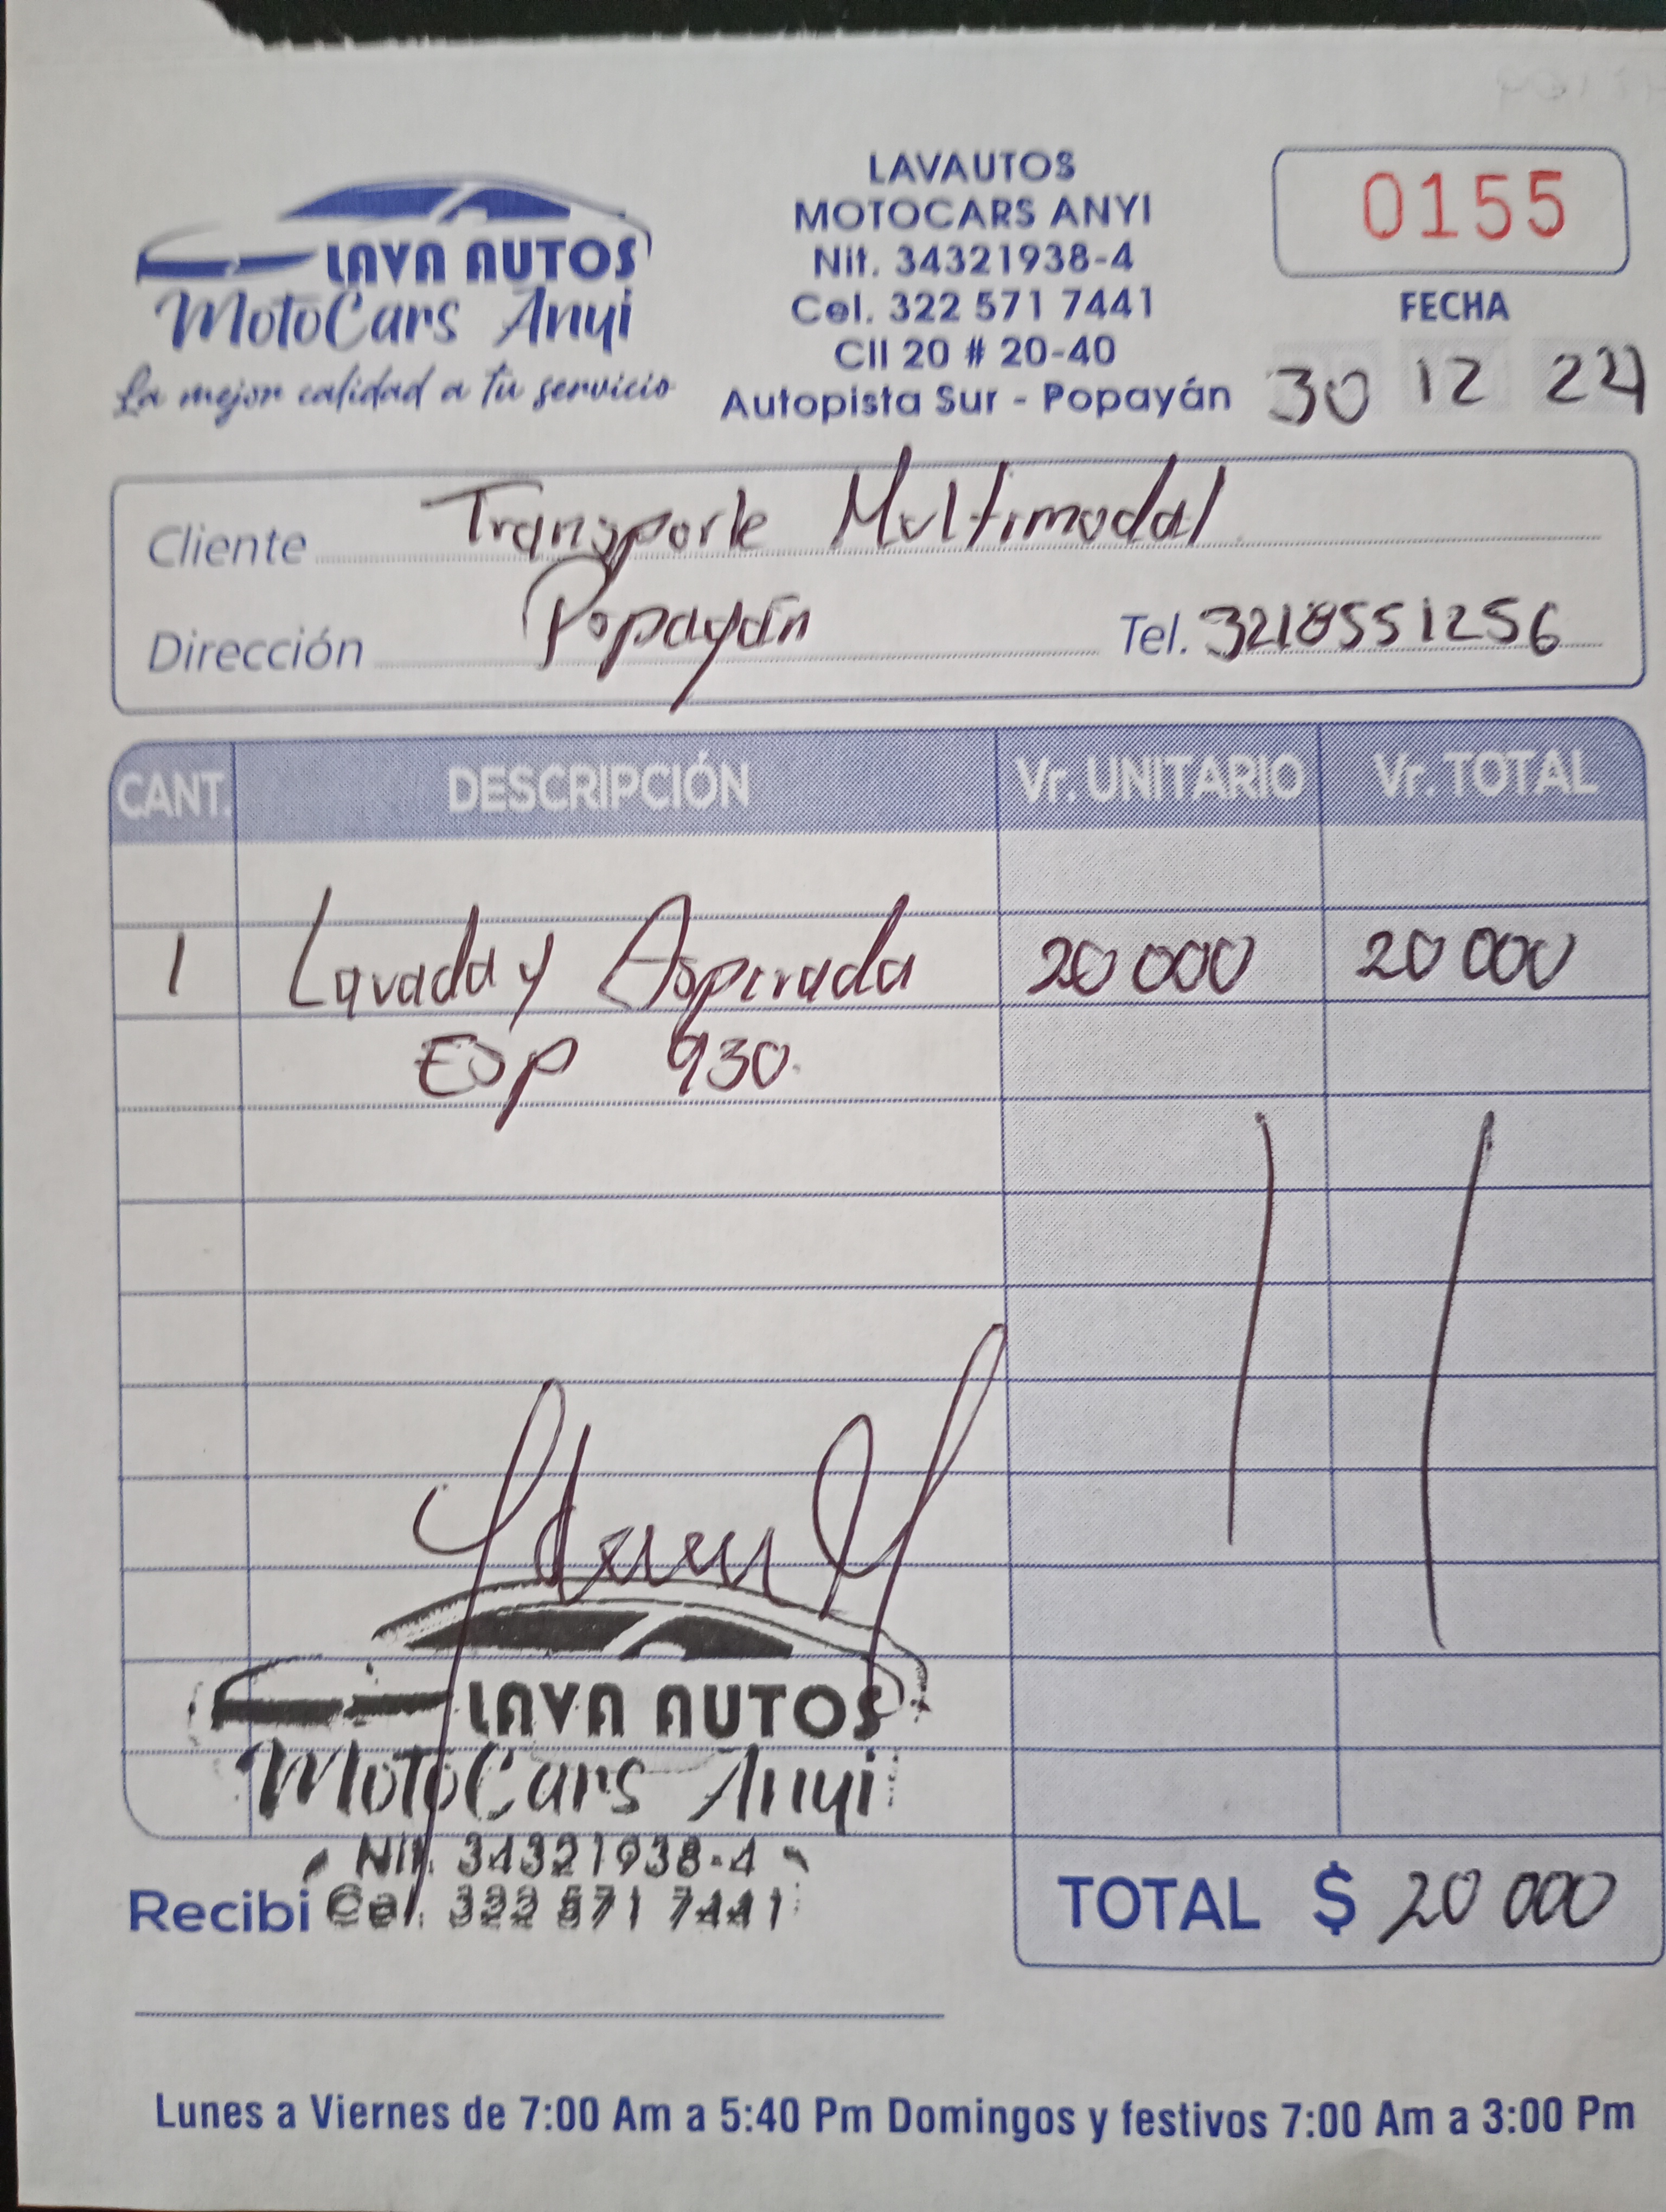 LAVA AUTOS
MotoCars Anyi
La mejor calidad a tu servicio
LAVAUTOS
MOTOCARS ANYI
Nit. 34321938-4
Cel. 322 571 7441
Cll 20 # 20-40
Autopista Sur - Popayán
0155
FECHA
30 12 24
Cliente Transporte Multimodal
Dirección Popayán Tel. 3218551256
CANT. DESCRIPCIÓN Vr. UNITARIO Vr. TOTAL
1 Lavada y Aspirada 20 000 20 000
Esp 930.
LAVA AUTOS
MotoCars Anyi
Nit. 34321938-4
Recibi Cel. 322 571 7441
TOTAL $ 20 000
Lunes a Viernes de 7:00 Am a 5:40 Pm Domingos y festivos 7:00 Am a 3:00 Pm